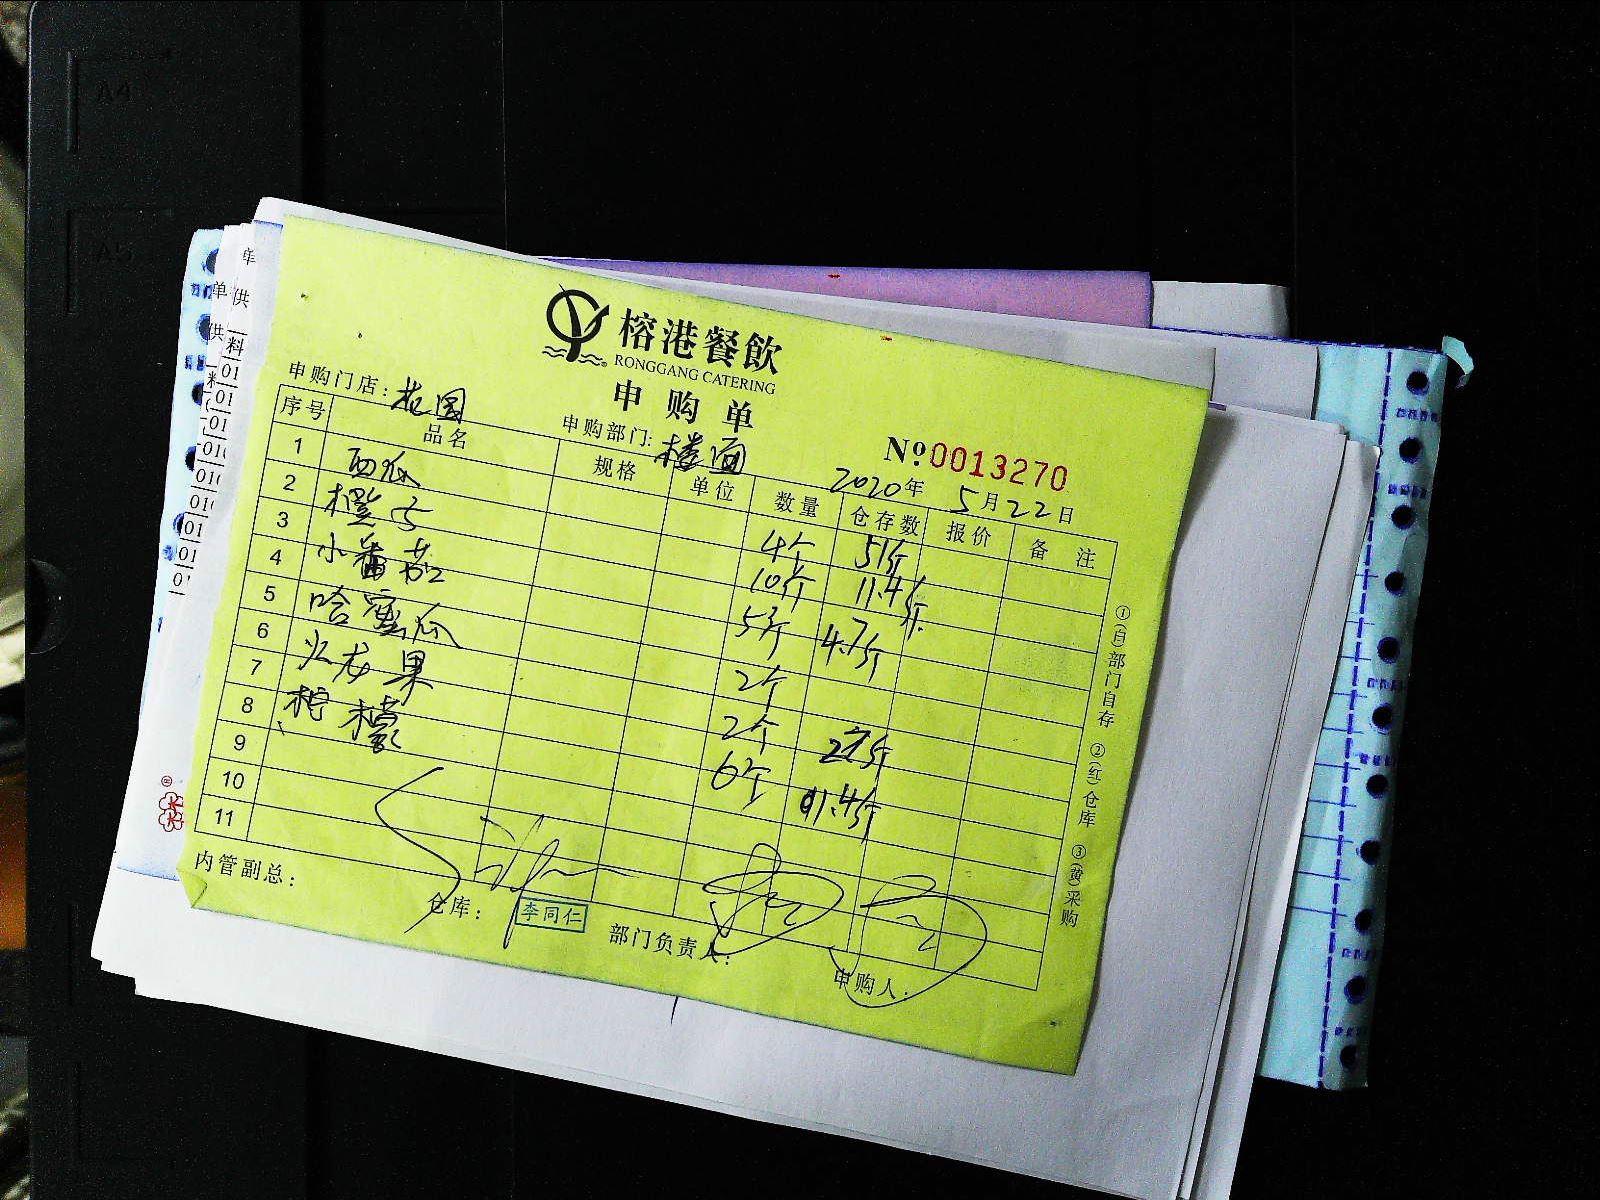 榕港餐飲
RONGGANG CATERING
申购单
申购门店: 花园
申购部门: 楼面
№ 0013270
2020年 5月22日
序号 品名 规格 单位 数量 仓存数 报价 备注
1 西瓜 4个 51斤
2 橙子 10斤 11.4斤
3 小番茄 5斤 4.7斤
4 哈蜜瓜 2个
5 火龙果 2个
6 柠檬 6个
7
8
9
10
11
①(白)部门自存 ②(红)仓库 ③(黄)采购
内管副总:
仓库: 李同仁
部门负责人:
申购人:
A4
A5
单
单 供
供 料
01
01
01
01
01
01
01
01